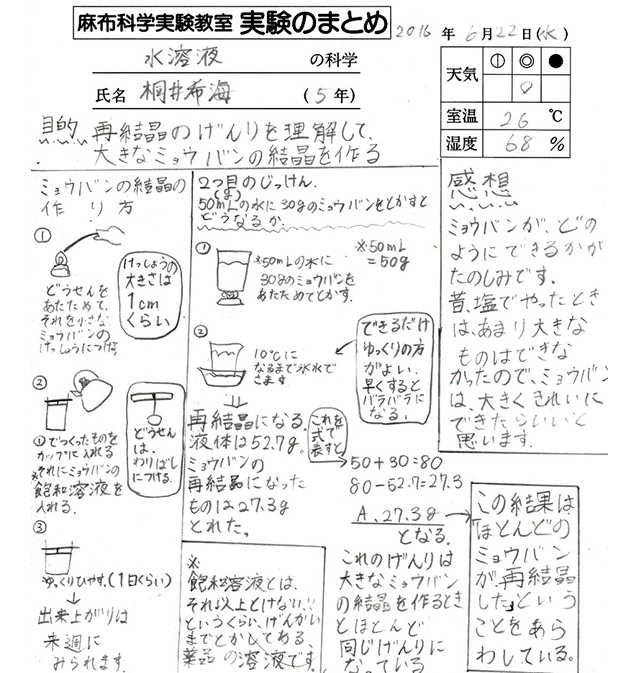 麻布科学実験教室 実験のまとめ
2016 年 6月22日(水)
水溶液 の科学
氏名 桐井希海 (5年)
天気 ① ◎ ●
室温 26 ℃
湿度 68 %
目的 再結晶のげんりを理解して、
大きなミョウバンの結晶を作る
ミョウバンの結晶の
作り方
①
どうせんを
あたためて、
それを小さな
ミョウバンの
けっしょうにつける
けっしょうの
大きさは
1cm
くらい
②
①でつくったものを
カップに入れる
それにミョウバンの
※飽和溶液を
入れる。
どうせん
は、
わりばし
につける。
③
ゆっくりひやす。(1日くらい)
↓
出来上がりは
来週に
みられます。
2つ目のじっけん.
(g)
50mLの水に30gのミョウバンをとかすと
どうなるか.
①
※50mLの水に
30gのミョウバンを
あたためてとかす.
※50mL
=50g
②
10℃に
なるまで氷水で
さます
できるだけ
ゆっくりの方
がよい.
早くすると
バラバラに
なる.
再結晶になる.
液体は52.7g.
ミョウバンの
再結晶になった
ものは27.3g
とれた。
これを
式で
表すと
50+30=80
80-52.7=27.3
A.27.3g
となる.
これのげんりは
大きなミョウバン
の結晶を作るとき
とほとんど
同じげんりに
なっている
※
飽和溶液とは、
それ以上とけない!!
というくらい、げんかい
までとかしてある、
薬品の溶液です。
感想
ミョウバンが、どの
ようにできるかが
たのしみです。
昔、塩でやったとき
は、あまり大きな
ものはできな
かったので、ミョウバン
は、大きくきれいに
できたらいいと
思います.
この結果は
「ほとんどの
ミョウバン
が、再結晶
した」という
ことをあら
わしている。